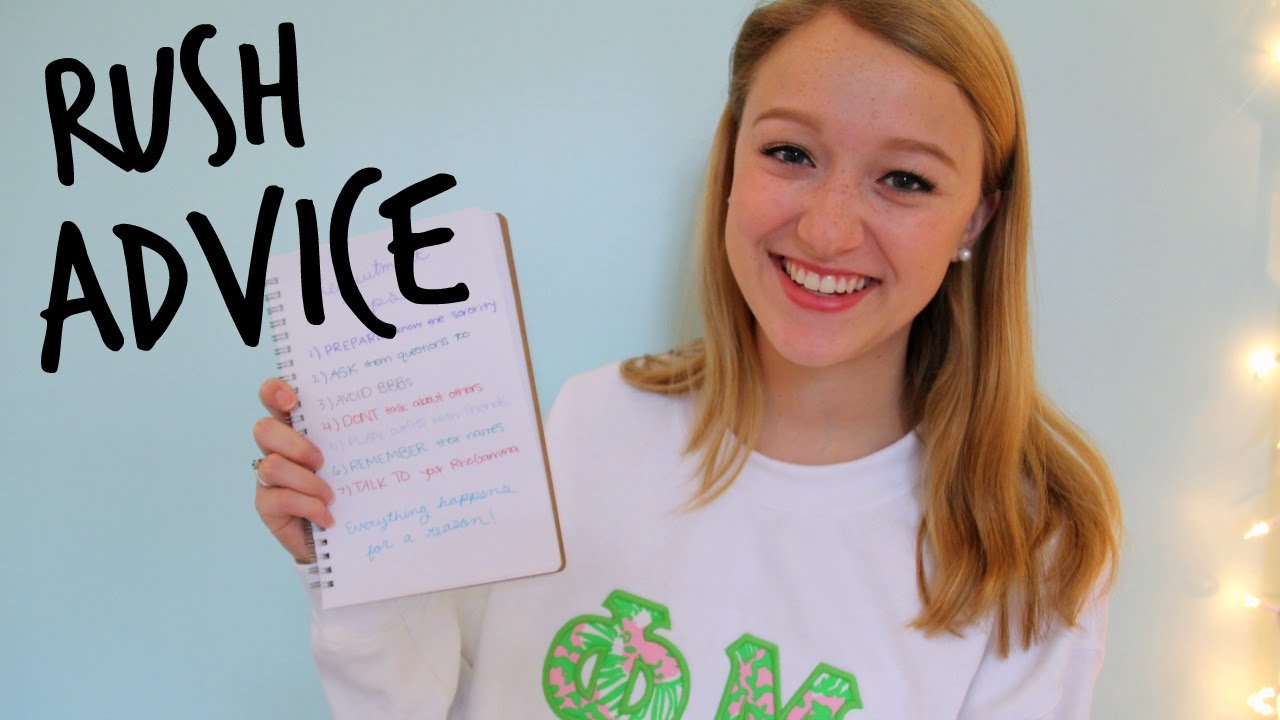 RUSH
ADVICE
1) PREPARE know the sorority
2) ASK them questions too
3) AVOID BBBs
4) DONT talk about others
5) PLAN outfits with friends
6) REMEMBER their names
7) TALK TO your RhoGamma
Everything happens
for a reason!
Φ M